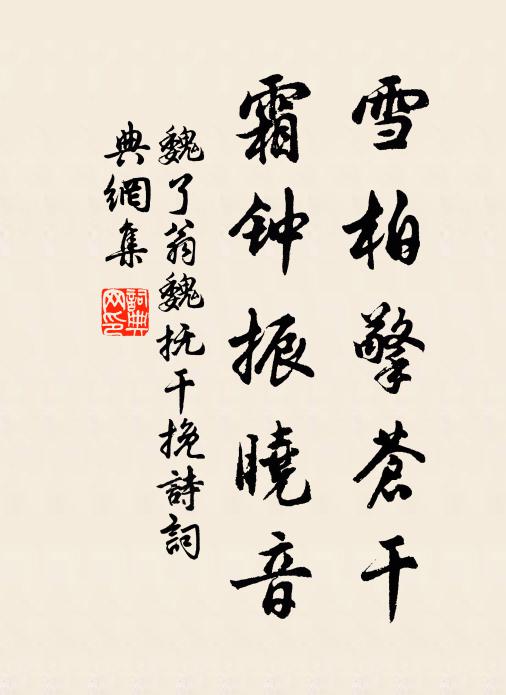 雪柏擎苍干
霜钟振曉音
魏了翁魏抚干挽詩詞
典網集
詞典
网印